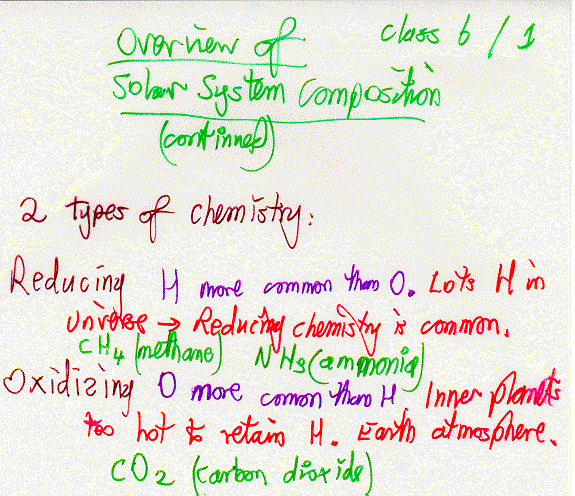 Overview of class 6 / 1
Solar System Composition
(continued)
2 types of chemistry:
Reducing H more common than O. Lots H in
Universe → Reducing chemistry is common.
CH4 (methane) NH3 (ammonia)
Oxidizing O more common than H. Inner planets
too hot to retain H. Earth atmosphere.
CO2 (carbon dioxide)